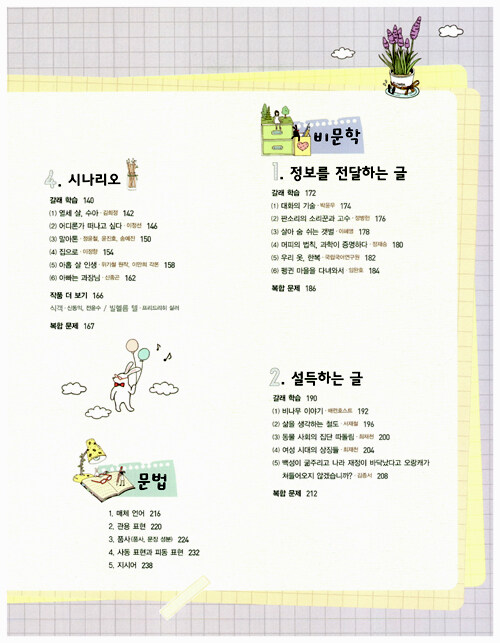 4. 시나리오
갈래 학습 140
(1) 열세 살, 수아 · 김희정 142
(2) 어디론가 떠나고 싶다 · 이창선 146
(3) 말아톤 · 정윤철, 윤진호, 송예진 150
(4) 집으로 · 이정향 154
(5) 아홉 살 인생 · 위기철 원작, 이만희 각본 158
(6) 아빠는 과장님 · 신종곤 162
작품 더 보기 166
식객 · 신동익, 전윤수 / 빌헬름 텔 · 프리드리히 실러
복합 문제 167
문법
1. 매체 언어 216
2. 관용 표현 220
3. 품사(품사, 문장 성분) 224
4. 사동 표현과 피동 표현 232
5. 지시어 238
비문학
1. 정보를 전달하는 글
갈래 학습 172
(1) 대화의 기술 · 박윤우 174
(2) 판소리의 소리꾼과 고수 · 정병헌 176
(3) 살아 숨 쉬는 갯벌 · 이혜영 178
(4) 머피의 법칙, 과학이 증명하다 · 정재승 180
(5) 우리 옷, 한복 · 국립국어연구원 182
(6) 펭귄 마을을 다녀와서 · 임완호 184
복합 문제 186
2. 설득하는 글
갈래 학습 190
(1) 비나무 이야기 192
(2) 삶을 생각하는 철도 196
(3) 동물 사회의 집단 따돌림 · 최재천 200
(4) 여성 시대의 상징들 · 최재천 204
(5) 백성이 굶주리고 나라 재정이 바닥났다고 오랑캐가
쳐들어오지 않겠습니까? · 김종서 208
복합 문제 212